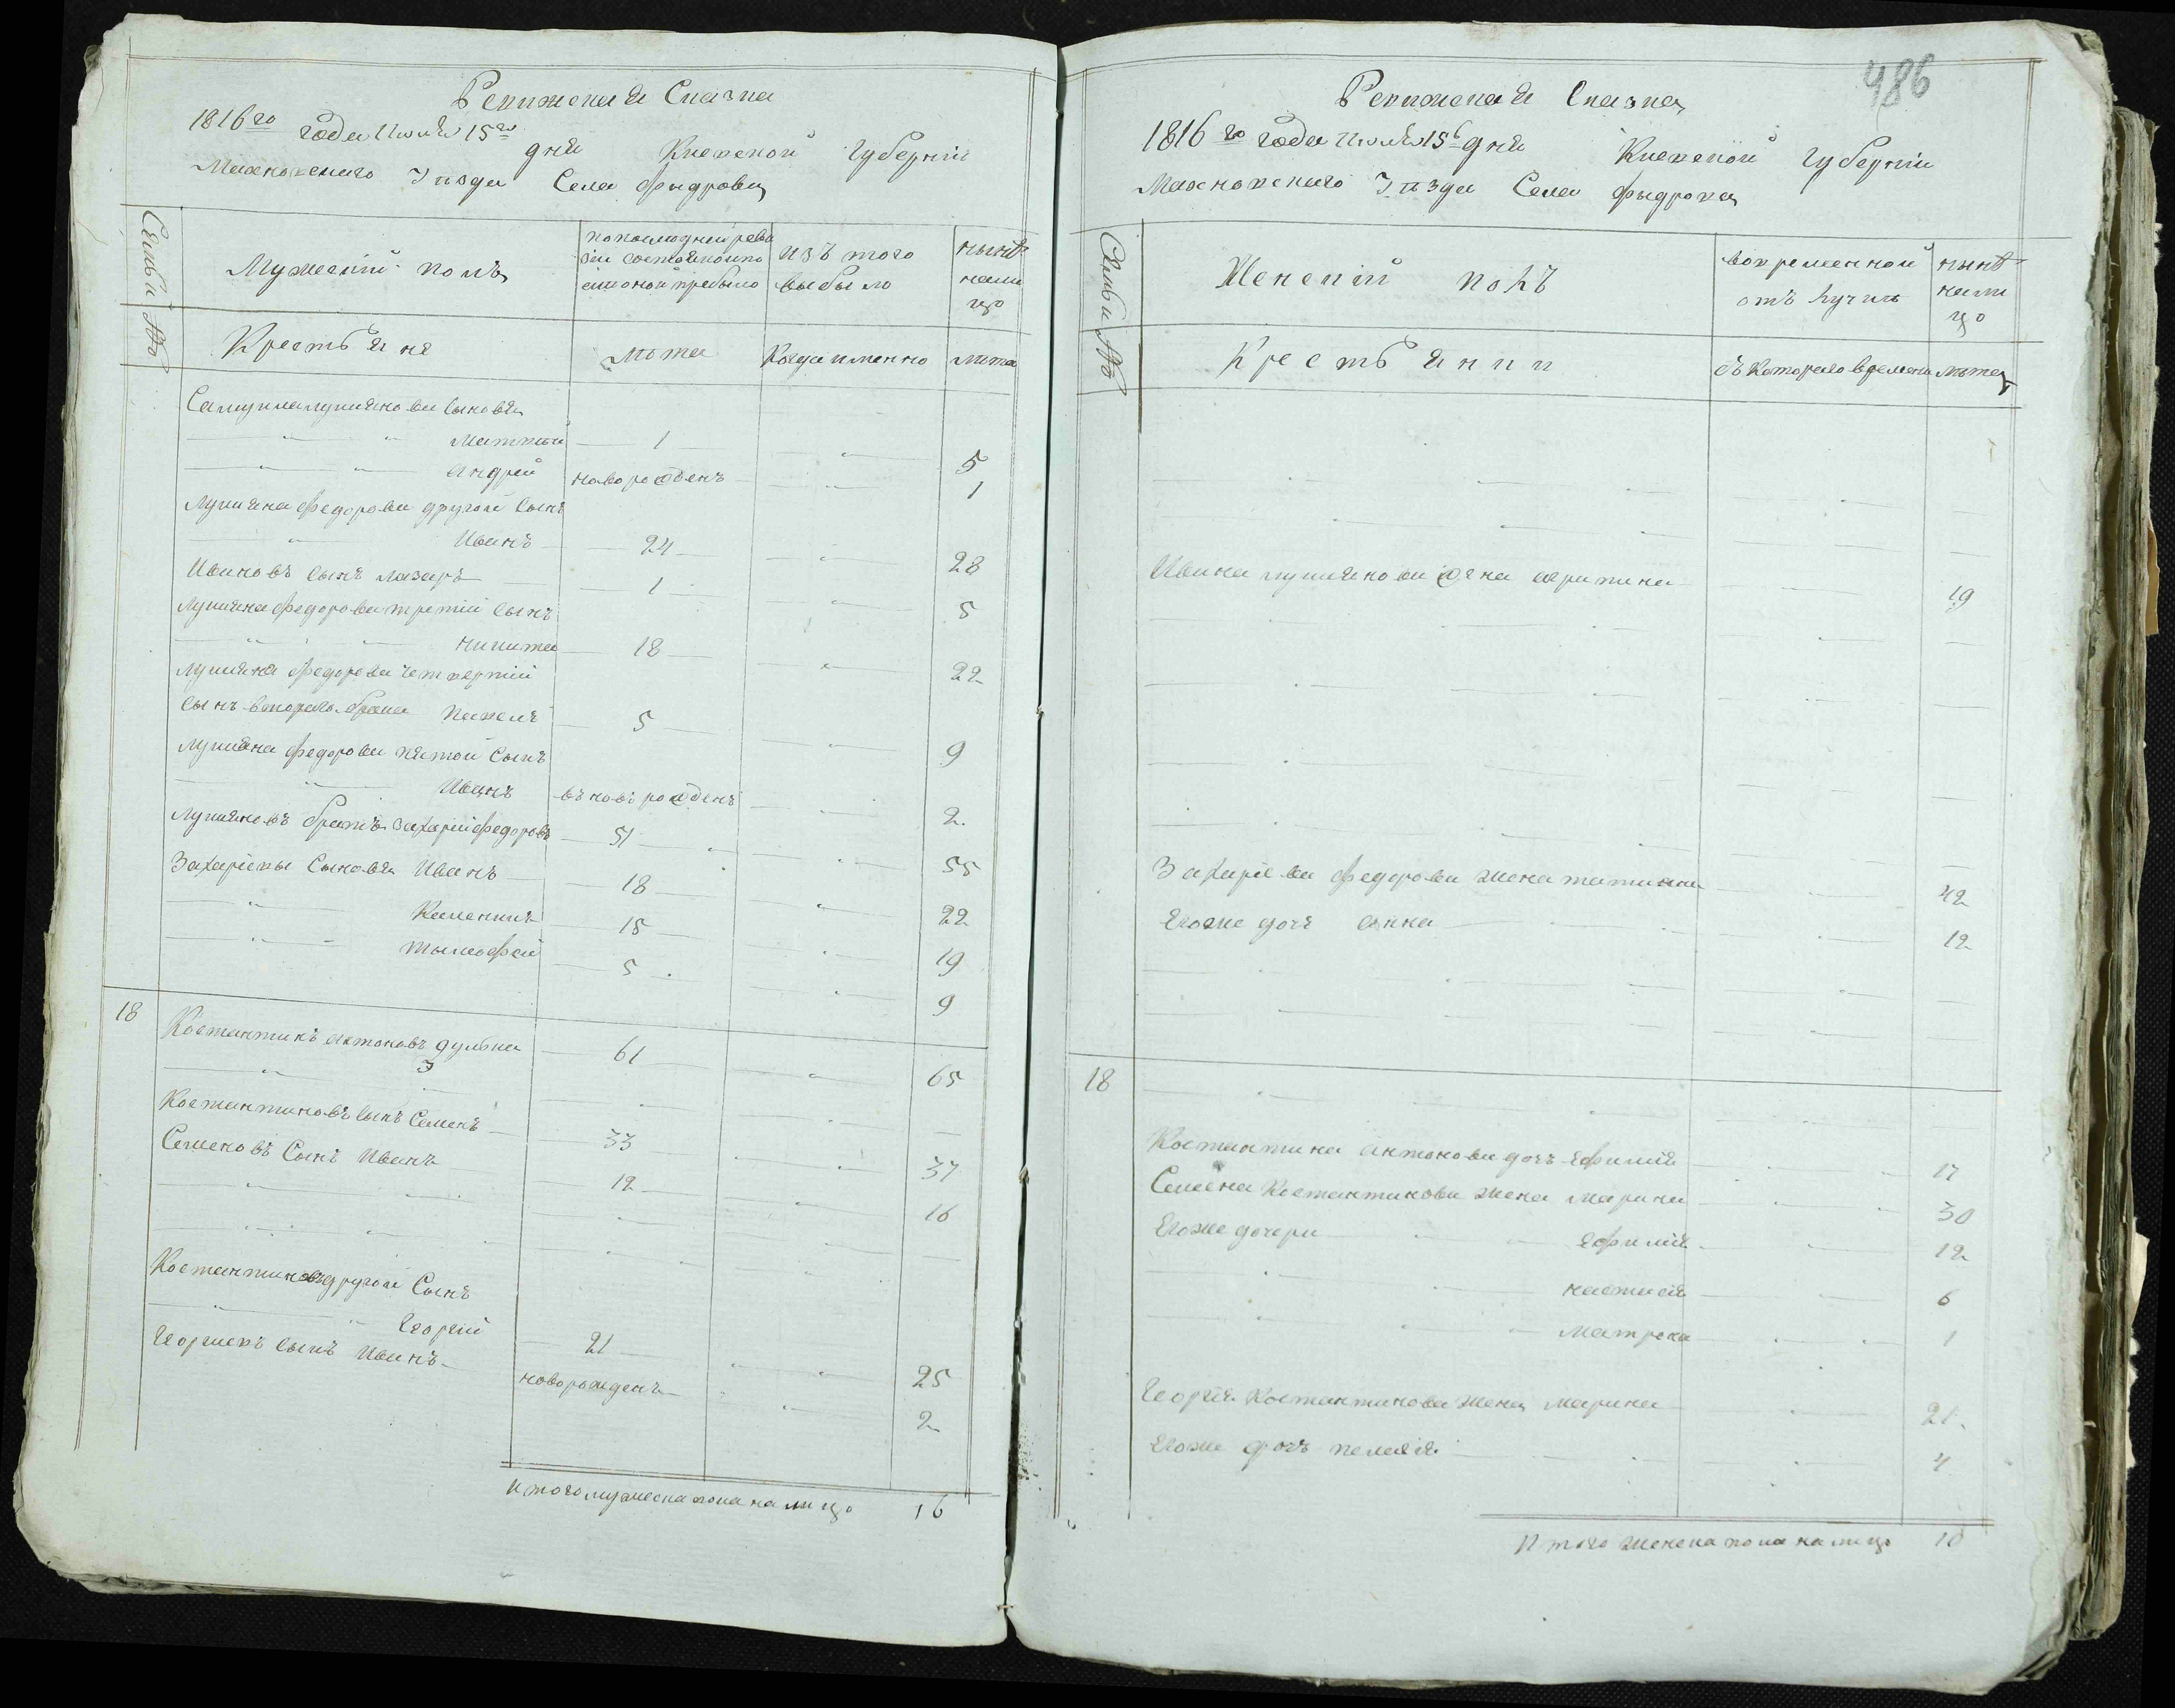 Ревижская Сказка
1816го года Июля 15го дня Киевской Губернiи
Махновского Уѣзда Села Фыдровка
Семьи №
Мужескiй полъ
по последней ревизiи состояло и после оной прибыло
изъ того выбыло
нынѣ налицо
Крестьяне
Лѣта
Когда именно
лѣта
Самуила лукиянова сыновья
Матвѣй 1 5
Андрей новорожденъ 1
Лукияна Федорова другой Сынъ
Иванъ 24 28
Ивановъ сынъ Лазаръ 1 5
Лукияна Федорова третiй Сынъ
никита 18 22
Лукияна Федорова четвертiй
сынъ второго брака Павелъ 5 9
Лукияна Федорова пятой Сынъ
Иванъ вновъ рожденъ 2
Лукияновъ братъ Захарiй Федоровъ 51 55
Захарiевы Сыновья Иванъ 18 22
Каленикъ 15 19
тымофей 5 9
18 Костантинъ антоновъ 61 65
Костантиновъ сынъ Семенъ 33 37
Семеновъ Сынъ Иванъ 12 16
Костантиновъ другой Сынъ
Георгiй 21 25
Георгiевъ сынъ Иванъ новорожденъ 2
Итого мужеска пола на лицо 16
486
Ревижская Сказка
1816го года Июля 15го дня Киевской Губернiи
Махновского Уѣзда Села Фыдровка
Семьи №
Женскiй полъ
во временной отълучкѣ
нынѣ налицо
Крестьянки
съ которого времени
лѣта
Ивана лукиянова жена 19
Захарiева Федорова жена татияна 42
Егоже дочь анна 12
18
Костантина антонова дочь Ефимiя 17
Семена Костантинова жена Марина 30
Егоже дочери Ефимiя 12
настасiя 6
матрена 1
Георгiя Костантинова жена марина 21
Егоже дочь пелагiя 4
Итого женска пола на лицо 10